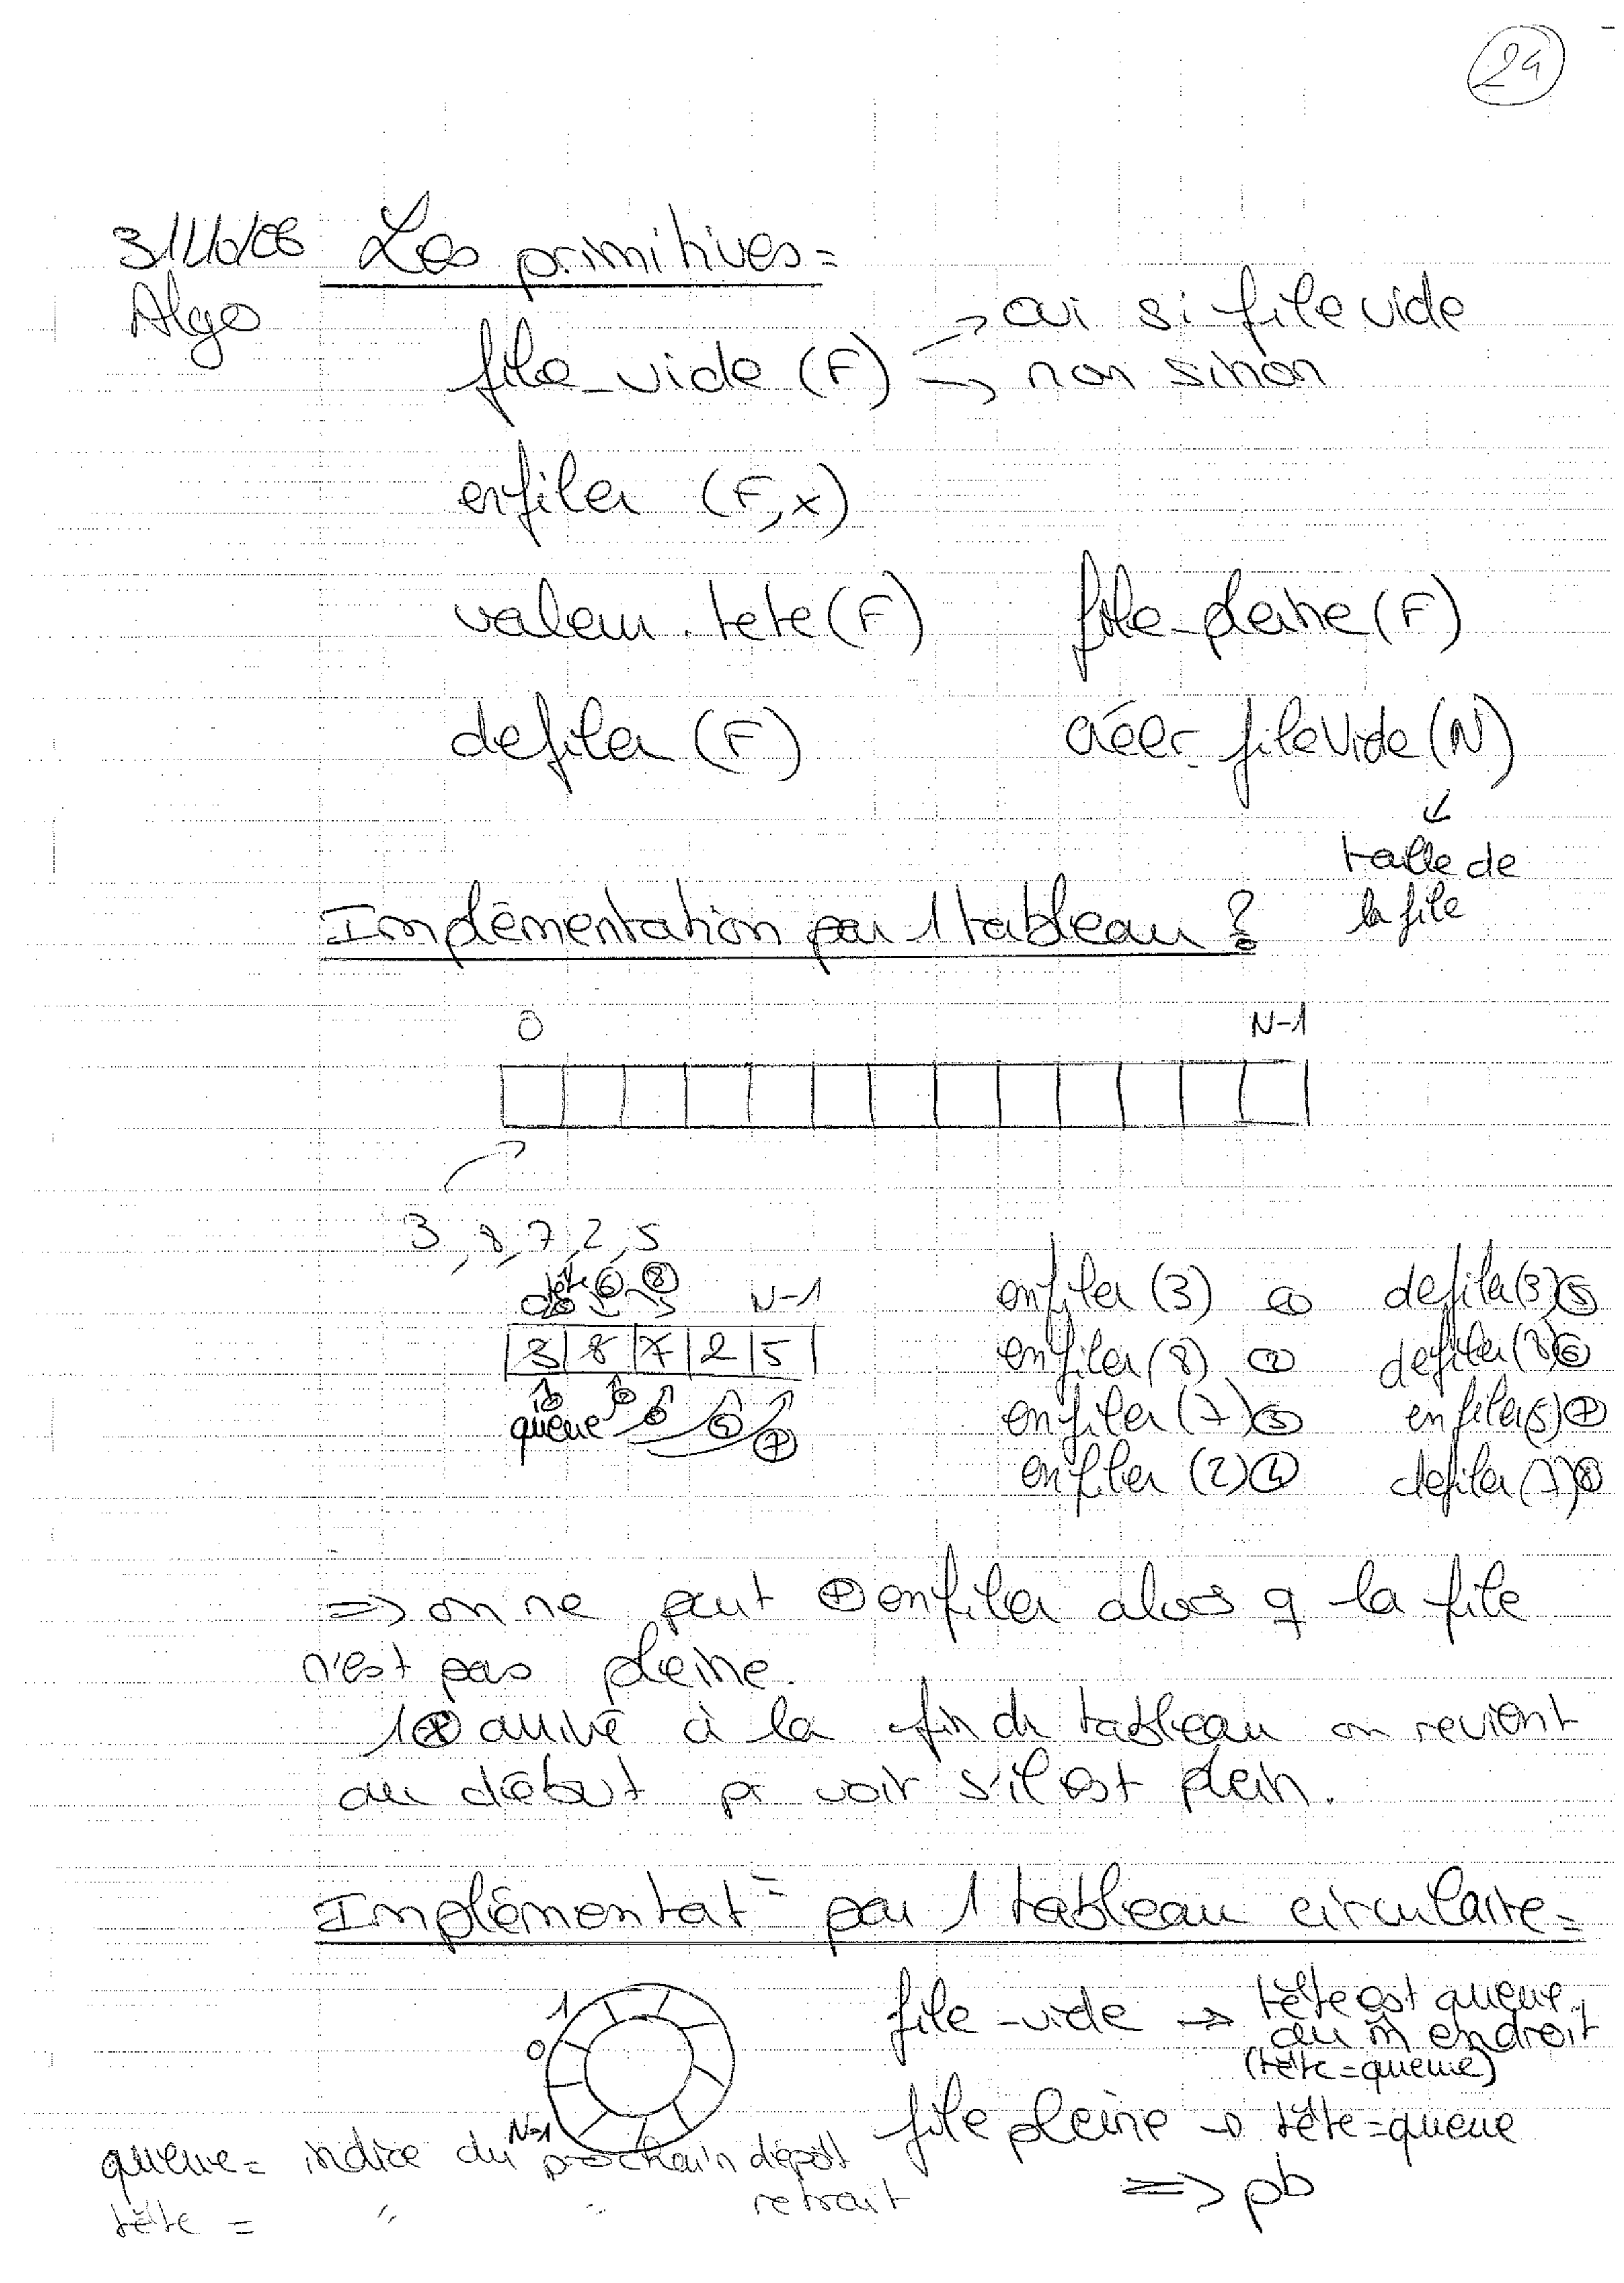 24
31/10/06 Les primitives =
Algo
file_vide (F) → oui si file vide
→ non sinon
enfiler (F,x)
valeur.tete(F) file_pleine(F)
defiler (F) créer_fileVide(N)
↓
taille de
la file
Implémentation par 1 tableau ?
0 N-1
3, 8, 7, 2, 5
tête ⑥ ⑧
N-1
3 8 7 2 5
queue ⑦
enfiler (3) ① defiler(3) ⑤
enfiler (8) ② defiler(8) ⑥
enfiler (7) ③ enfiler(5) ⑦
enfiler (2) ④ defiler(7) ⑧
=> on ne peut ⊕ enfiler alors q la file
n'est pas pleine.
1 ⊗ arrivé à la fin du tableau on revient
au début pr voir s'il est plein.
Implémentat° par 1 tableau circulaire =
1
0
N-1
file_vide → tête est queue
au m̂ endroit
(tête = queue)
file pleine → tête = queue
=> pb
queue = indice du prochain dépôt
tête = " " retrait